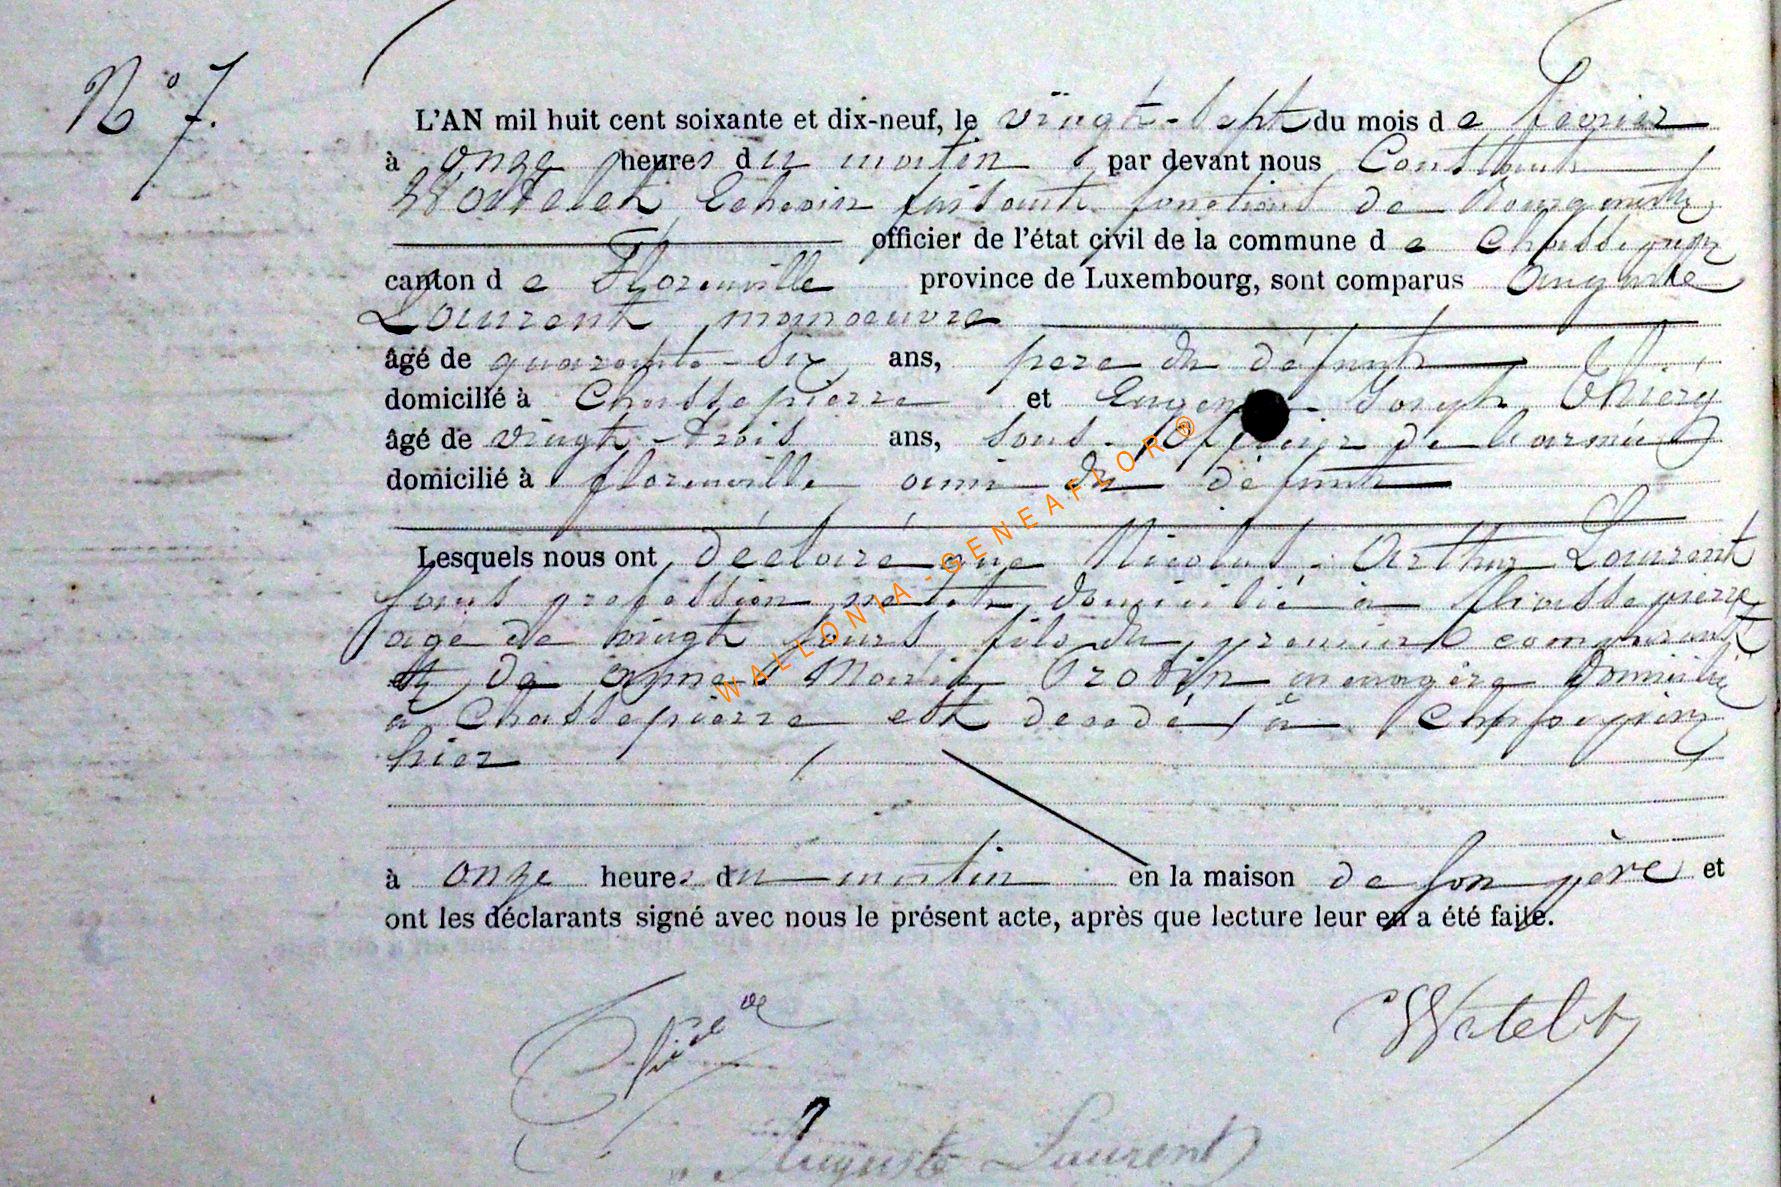 N° 7.
L'AN mil huit cent soixante et dix-neuf, le vingt-sept du mois de fevrier
à onze heures du matin par devant nous Constant
Watelet, Echevin faisant fonctions de Bourgmestre
officier de l'état civil de la commune de Chassepierre
canton de Florenville province de Luxembourg, sont comparus Auguste
Laurent manoeuvre
âgé de quarante-six ans, pere du défunt
domicilié à Chassepierre et Joseph Thiéry
âgé de vingt-trois ans, sous-Officier de l'armée
domicilié à florenville ami du défunt
Lesquels nous ont déclaré que Nicolas-Arthur Laurent
sans profession né et domicilié à Chassepierre
agé de vingt jours fils du premier comparant
et de Anne Marie Probin menagère domiciliée
à Chassepierre est decedé à Chassepierre
hier
à onze heures du matin en la maison de son père et
ont les déclarants signé avec nous le présent acte, après que lecture leur en a été faite.
Watelet
Auguste Laurent
WALLONIA-GENEAFLOR®